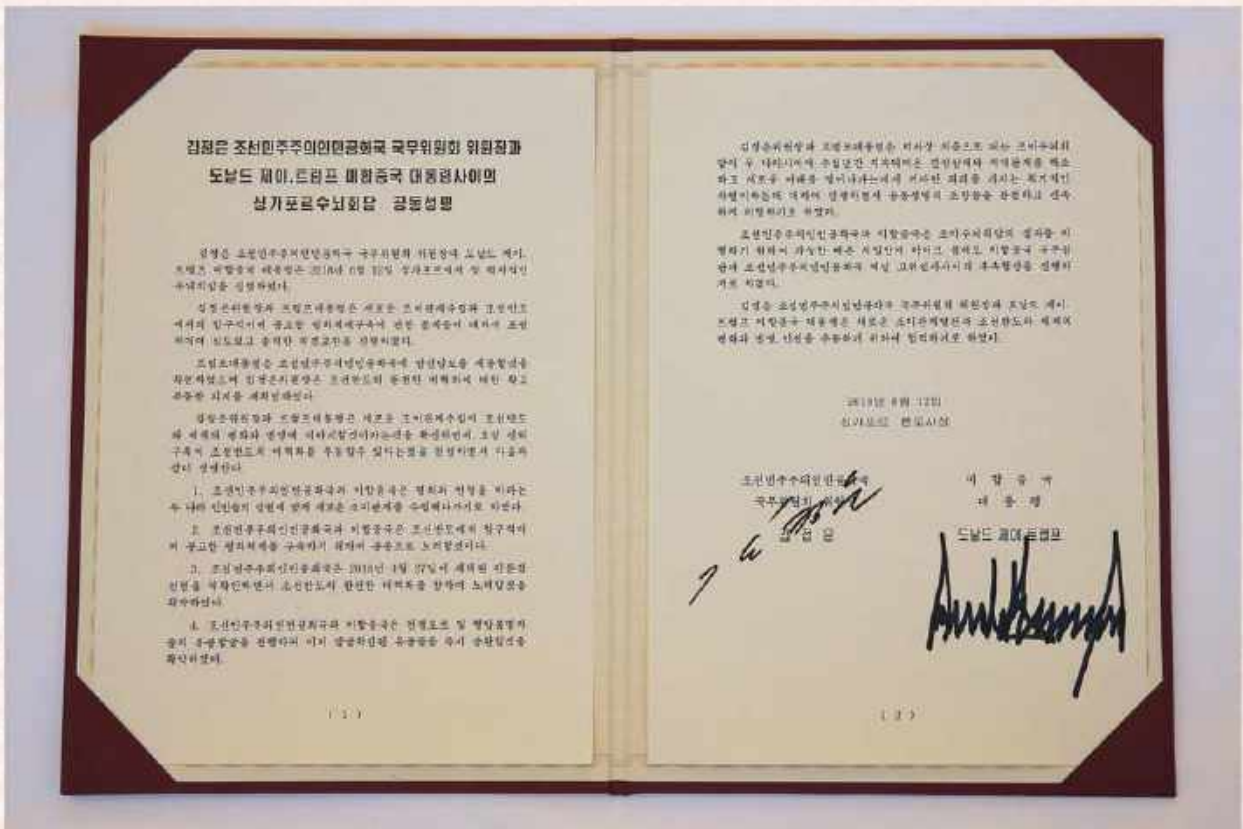 김정은 조선민주주의인민공화국 국무위원회 위원장과
도날드 제이.트럼프 미합중국 대통령사이의
싱가포르수뇌회담 공동성명
김정은 조선민주주의인민공화국 국무위원회 위원장과 도날드 제이.
트럼프 미합중국 대통령은 2018년 6월 12일 싱가포르에서 첫 력사적인
수뇌회담을 진행하였다.
김정은위원장과 트럼프대통령은 새로운 조미관계수립과 조선반도
에서의 항구적이며 공고한 평화체제구축에 관한 문제들에 대하여 포괄
적이며 심도있고 솔직한 의견교환을 진행하였다.
트럼프대통령은 조선민주주의인민공화국에 안전담보를 제공할것을
확언하였으며 김정은위원장은 조선반도의 완전한 비핵화에 대한 확고
부동한 의지를 재확인하였다.
김정은위원장과 트럼프대통령은 새로운 조미관계수립이 조선반도
와 세계의 평화와 번영에 이바지할것이라는것을 확신하면서, 호상 신뢰
구축이 조선반도의 비핵화를 추동할수 있다는것을 인정하면서 다음과
같이 성명한다.
1. 조선민주주의인민공화국과 미합중국은 평화와 번영을 바라는
두 나라 인민들의 념원에 맞게 새로운 조미관계를 수립해나가기로 하였다.
2. 조선민주주의인민공화국과 미합중국은 조선반도에서 항구적이
며 공고한 평화체제를 구축하기 위하여 공동으로 노력할것이다.
3. 조선민주주의인민공화국은 2018년 4월 27일에 채택된 판문점
선언을 재확인하면서 조선반도의 완전한 비핵화를 향하여 노력할것을
확약하였다.
4. 조선민주주의인민공화국과 미합중국은 전쟁포로 및 행방불명자
들의 유골발굴을 진행하며 이미 발굴확인된 유골들을 즉시 송환할것을
확약하였다.
( 1 )
김정은위원장과 트럼프대통령은 력사상 처음으로 되는 조미수뇌회
담이 두 나라사이에 수십년간 지속되여온 긴장상태와 적대관계를 해소
하고 새로운 미래를 열어나가는데서 커다란 의의를 가지는 획기적인
사변이라는데 대하여 인정하면서 공동성명의 조항들을 완전하고 신속
하게 리행하기로 하였다.
조선민주주의인민공화국과 미합중국은 조미수뇌회담의 결과를 리
행하기 위하여 가능한 빠른 시일안에 마이크 폼페오 미합중국 국무장
관과 조선민주주의인민공화국 해당 고위인사사이의 후속협상을 진행하
기로 하였다.
김정은 조선민주주의인민공화국 국무위원회 위원장과 도날드 제이.
트럼프 미합중국 대통령은 새로운 조미관계발전과 조선반도와 세계의
평화와 번영, 안전을 추동하기 위하여 협력하기로 하였다.
2018년 6월 12일
싱가포르 쎈토사섬
조선민주주의인민공화국
국무위원회 위원장
김정은
미합중국
대통령
도날드 제이.트럼프
( 2 )